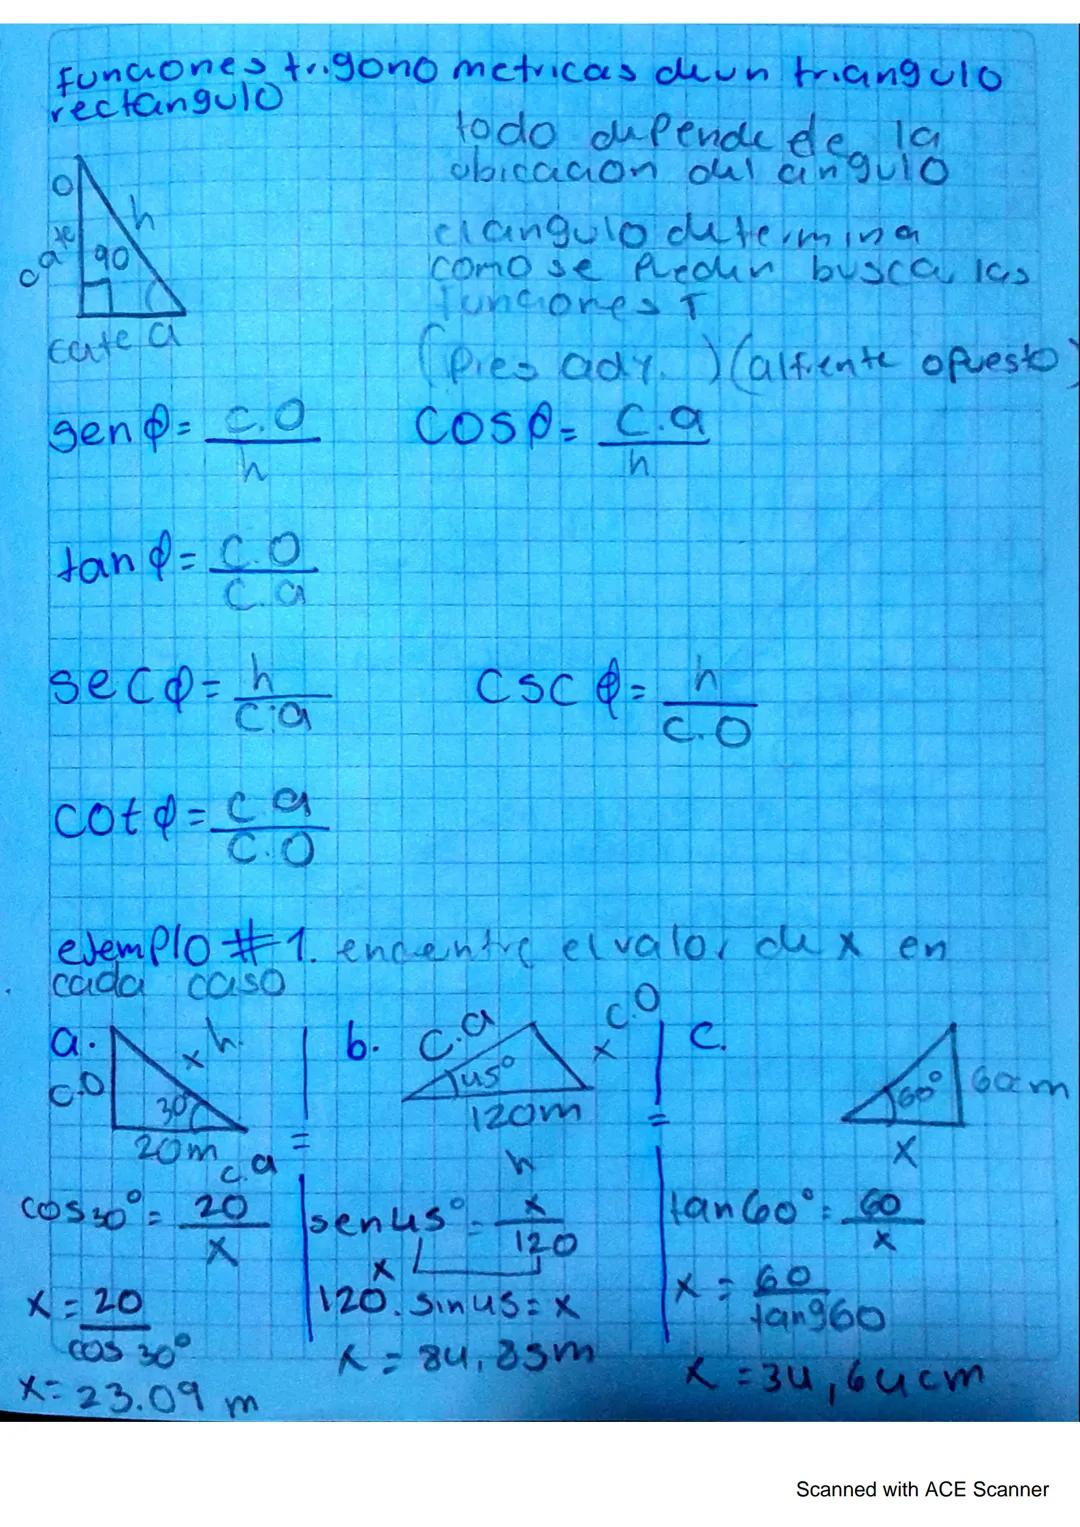 funciones trigonometricas de un triangulo
rectangulo
todo depende de la
ubicacion del angulo
o
h
cate
90
cate a
el angulo determina
como se pueden busca las
funciones T
(pies ady.) (alfrente opuesto)
sen φ = c.o / h
cos φ = c.a / h
tan φ = c.o / c.a
sec φ = h / c.a
csc φ = h / c.o
cot φ = c.a / c.o
ejemplo #1. encentre el valor de x en
cada caso
a.
c.o
x h.
30°
20m
c.a
b.
c.a
45°
x c.o
120m
h
c.
60°
60cm
x
cos 30° = 20 / x
x = 20 / cos 30°
x = 23.09 m
sen 45° = x / 120
x
120. sin 45 = x
x = 84,85m
tan 60° = 60 / x
x = 60 / tang60
x = 34,64cm
Scanned with ACE Scanner